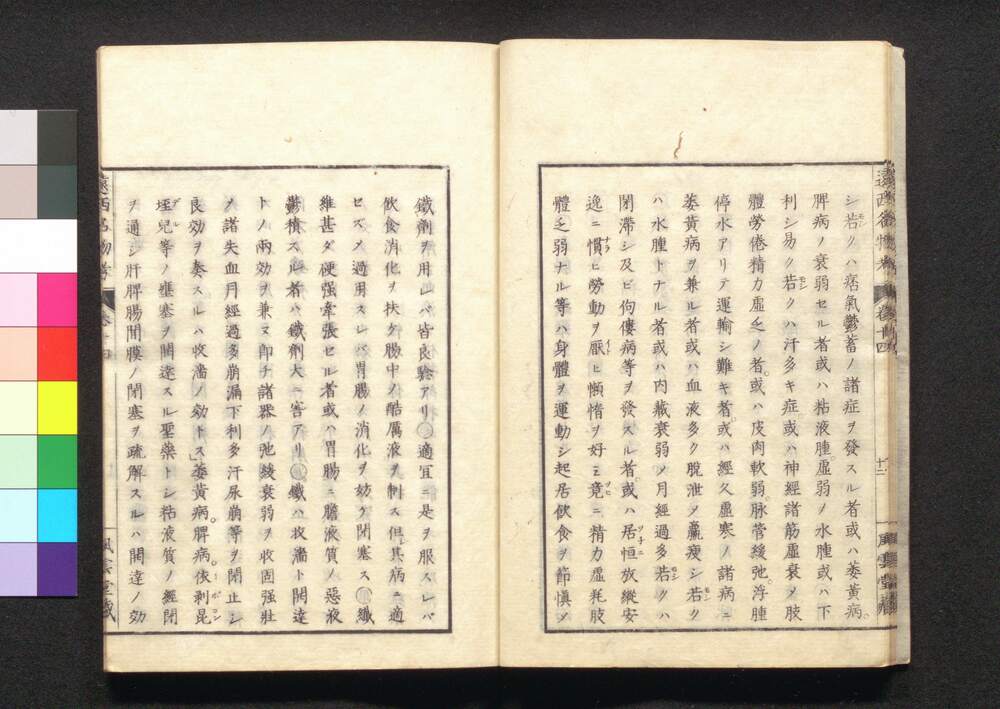 シ若クハ痞氣鬱蓄ノ諸症ヲ發スル者或ハ萎黄病。
脾病ノ衰弱セル者或ハ粘液腫。虛弱ノ水腫或ハ下
利シ易ク若クハ汗多キ症或ハ神經諸筋虛衰ヲ肢
體勞倦精力虛乏ノ者。或ハ皮肉軟弱。脉管緩弛。浮腫
停水アリテ運輸シ難キ者。或ハ經久虛寒ノ諸病ニ
萎黄病ヲ兼ル者或ハ血液多ク脫泄シ羸瘦シ若ク
ハ水腫トナル者或ハ内藏衰弱メ月經過多若クハ
閉滯シ及ビ佝僂病等ヲ發スル者。或ハ居恒放縱安
逸ニ慣ヒ勞動ヲ厭ヒ懶惰ヲ好ミ竟ニ精力虛耗肢
體乏弱ナル等ハ身體ヲ運動シ起居飲食ヲ節愼メ
遠西名物考 卷十四 十二 風雲堂藏
鐵劑ヲ用レバ皆良驗アリ○適宜ニ是ヲ服スレバ
飲食消化ヲ扶ケ腸中ノ酷厲液ヲ制ス但其病ニ適
セズメ過用スレバ胃腸ノ消化ヲ妨ケ閉塞ス○纖
維甚ダ硬强牽張セル者或ハ胃腸ニ膽液質ノ惡液
鬱積スル者ハ鐵劑大ニ害アリ○鐵ハ收濇ト開達
トノ兩効ヲ兼ヌ即チ諸器ノ弛緩衰弱ヲ收固强壯
メ諸失血月經過多崩漏下利多汗尿崩等ヲ閉止シ
良効ヲ奏スルハ收濇ノ効トス」萎黄病。脾病。依剥昆
垤兒等ノ壅塞ヲ開達スル聖藥トシ粘液質ノ經閉
ヲ通シ肝脾腸間膜ノ閉塞ヲ疏解スルハ開達ノ効
遠西名物考 卷十四 風雲堂藏